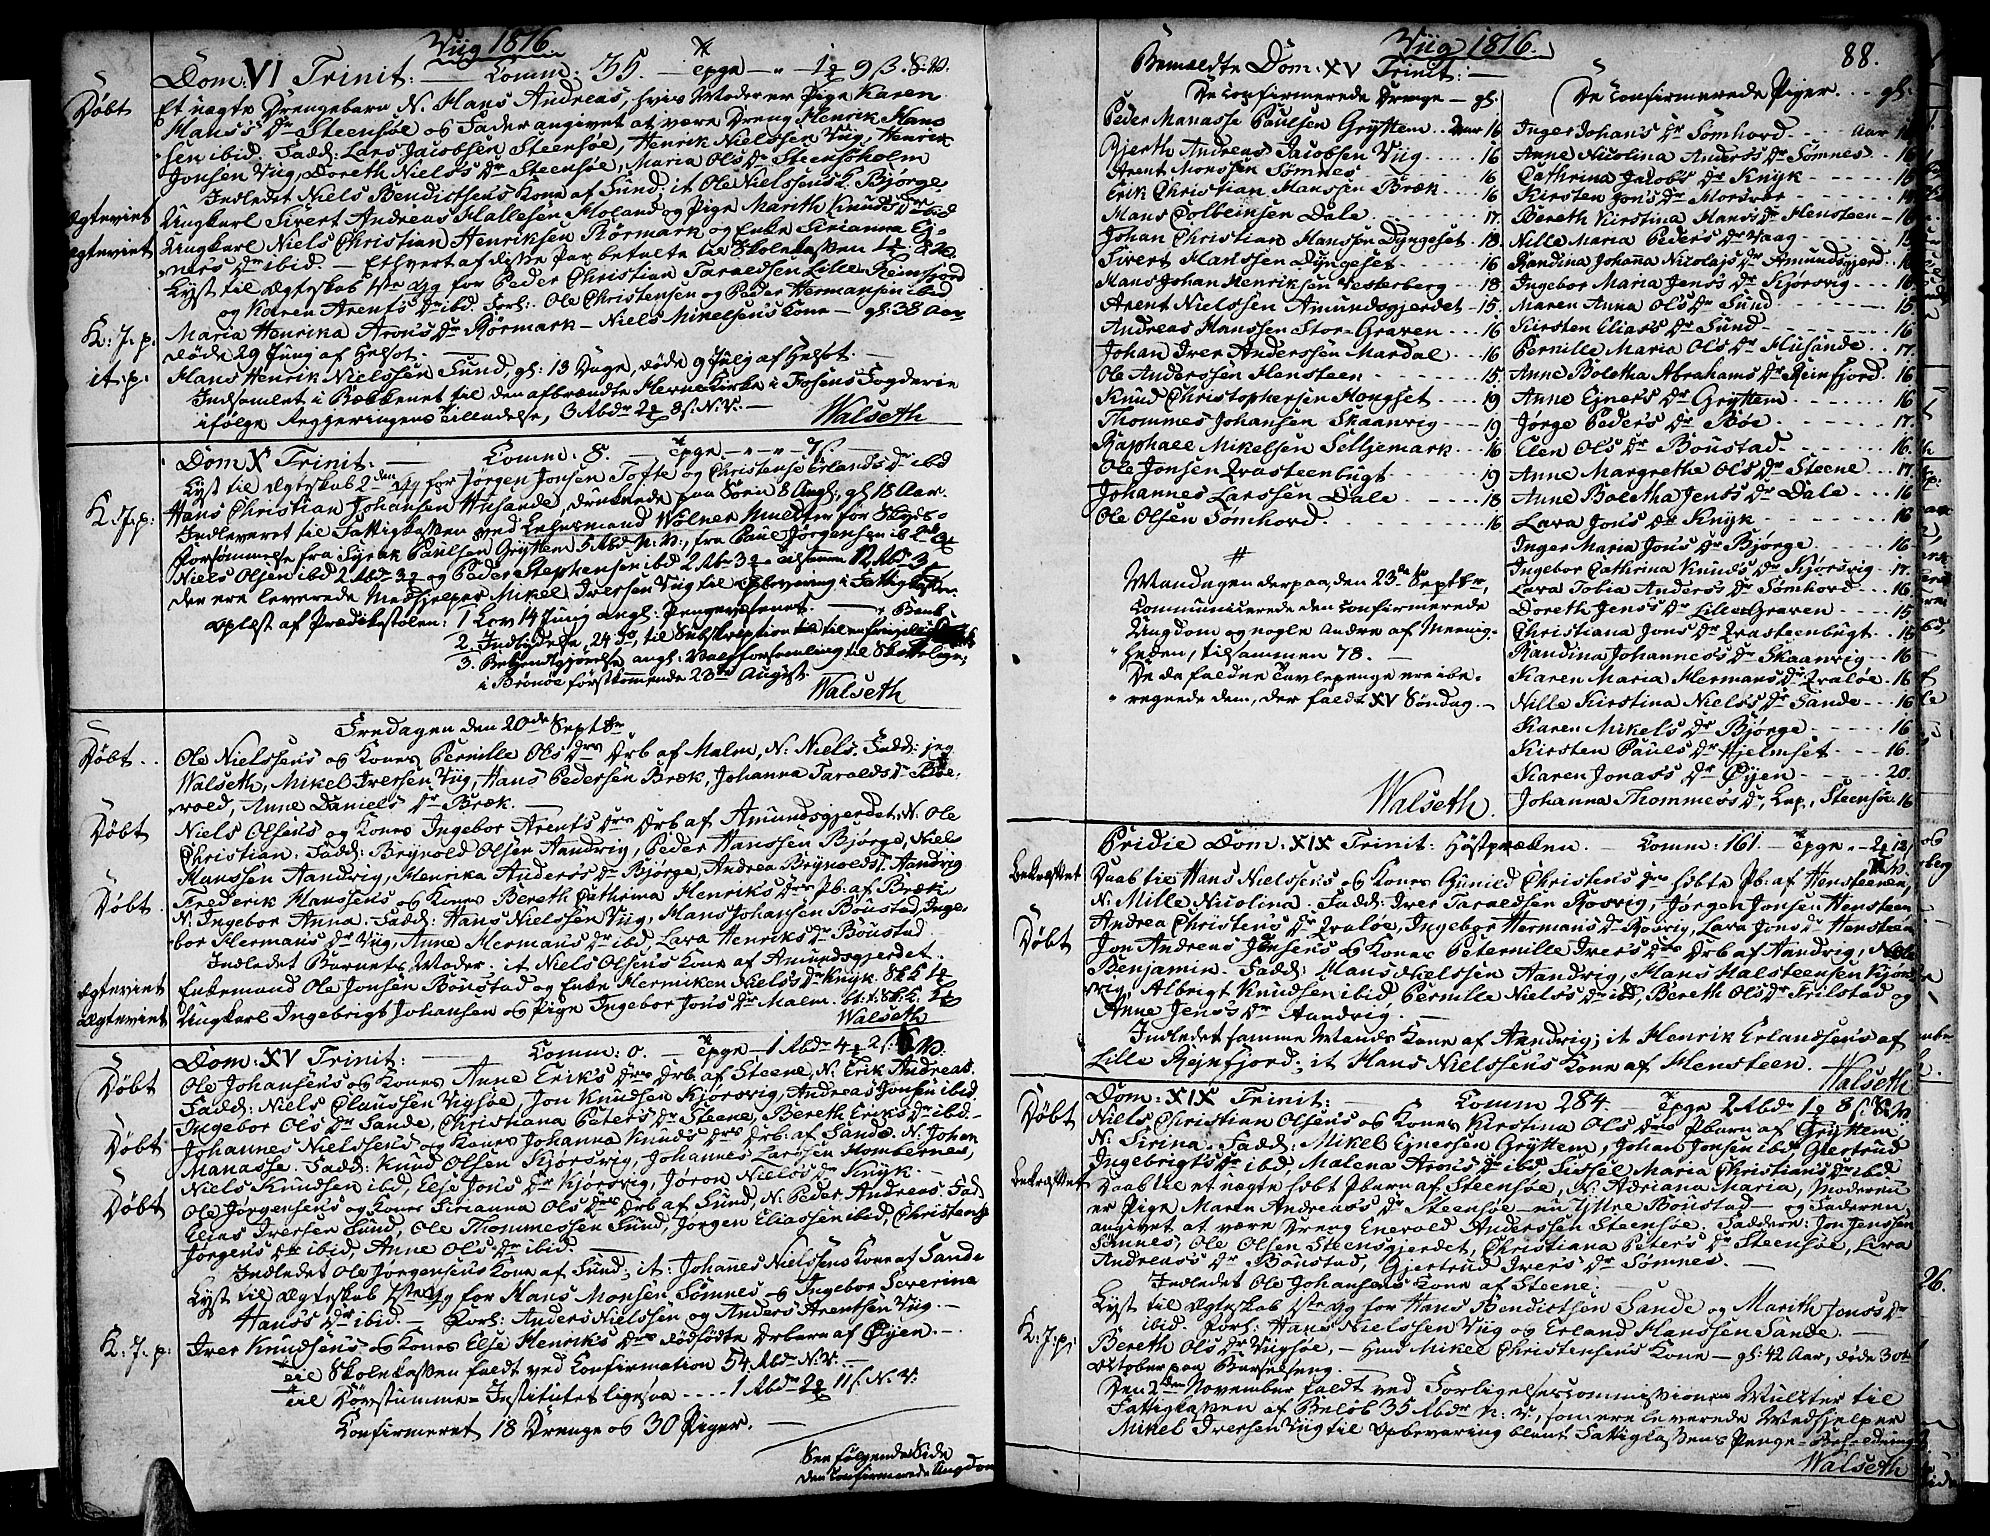 Viig 1816.
Dom: VI Trinit: — Comm: 35. — Tpge — " — 1 9 β. S.V.
Døbt
Et uægte Drengebarn N. Hans Andreas, hvis Moder er Pige Karen
Hans's Dr Steensøe og Fader angivet at være Dreng Henrik Hans
sen ibid. Fadd: Lars Jacobsen Steensøe, Henrik Nielssen Viig, Henrik
Jonsen Viig, Doreth Niels's Dr Steensøe, Maria Ols Dr Steensholm
Indledet Niels Bendictsens Kone af Sund: it Ole Nielssens K. Bjørge
Ægteviet Ungkarl Sivert Andreas Hallesen Floland og Pige Marith Knuds Dr ibid
Ægteviet Ungkarl Niels Christian Henriksen Rørmark og Enke Sirianna Ej-
ner's Dr ibid. — Ethvert af disse Par betalte til Skolekassen
Lyst til Ægteskab 1ste Gg for Peder Christian Taraldsen Lille Reinfjord
og Karen Arents Dr ibd. Forl: Ole Christensen og Peder Hermansen ibid
K: J. p: Maria Henrika Arons Dr Rørmark — Niels Mikelsens Kone — gl: 38 Aar
døde 29 Junij af Helsot. —
it: p: Hans Henrik Nielssen Sund, gl: 13 Dage, døde 9 Julij af Helsot. —
Indsamlet i Bækkenet til den afbrændte Hevne Kirke i Fosens Fogderie
ifølge Regjeringens Tilladelse, 3 Rbdr 2 8 s. N.V. —
Walseth
Dom X Trinit: — Comm: 8. — Tpge
Lyst til Ægteskab 2den Gg for Jørgen Jonsen Tofte og Christense Erlands Dr ibd
K. J. p: Hans Christian Johansen Husande, druknede paa Søen 8 Aug; gl 18 Aar.
Indleveret til Fattigkassen ved Lehnsmand Wolner Mulcter for Skyds-
forsømmelse fra Syrak Paulsen Gryttem 5 Rbd N.V., fra Paul Jørgensen ib
Niels Olsen ibd 2 Rbd 3 og Peder Stephansen ibd 2 Rbr 3 tilsammen 12 Rbd 3
der ere leverede Medhjelper Mikel Iversen Viig til Opbevaring i Fattigkassen
oplæst af Prædikestolen: 1 Lov 14 Junij angl: Pengevæsenet. —
2. Indbydelse, 24 , til Subskription til en Bank
3. Bekjentgjørelse angl: Valgforsamling til
i Brønøe førstkommende 23de August.
Walseth
Fredagen den 20de Septbr
Døbt Ole Nielssens og Kones Pernille Ols Drs Drb af Malm, N: Niels. Fadd: jeg
Walseth, Mikel Iversen Viig, Hans Pedersen Bræk, Johanna Taralds Dr Bøe-
vold, Anne Daniels Dr Bræk. —
Døbt Niels Olsens og Kones Ingebor Arents Drs Drb af Amundsgjerdet, N. Ole
Christian. Fadd: Brynold Olsen Aandvig, Peder Hanssen Bjørge, Niels
Hanssen Aandvig, Henrika Anders Dr Bjørge, Andrea Brynolds Dr Aandvig
Døbt Frederik Hanssens og Kones Bereth Cathrina Henriks Drs Pb. af Bræk
N. Ingebor Anna. Fadd: Hans Nielssen Viig, Hans Johansen Boustad, Inge-
bor Hermans Dr Viig, Anne Hermans Dr ibid, Lara Henriks Dr Boustad
Indledet Barnets Moder, it Niels Olsens Kone af Amundsgjerdet.
Ægteviet Enkemand Ole Jonsen Boustad og Enke Hermiken Niels's Dr Knyk
Ægteviet Ungkarl Ingebrigt Johansen og Pige Ingebor Jons Dr Malm.
Walseth
Dom: XV Trinit: — Comm: 0. — Tpge — 1 Rbdr 4 2 s.
Døbt Ole Johansens og Kones Anne Eriks Drs Drb. af Steene, N. Erik Andreas.
Fadd: Niels Claussen Vigsøe, Jon Knudsen Kjørsvig, Andreas Jonsen ibid
Ingebor Ols Dr Sande, Christiana Peters Dr Steene, Bereth Eriks Dr ibd.
Døbt Johannes Nielssens og Kones Johanna Knuds Drs Drb. af Sande. N. Johan
Manasse. Fadd: Knud Olsen Kjørsvig, Johannes Larssen Hombernes,
Niels Knudsen ibid, Else Jons Dr Kjørsvig, Jøron Niels's Dr Knyk. —
Døbt Ole Jørgensens og Kones Sirianna Ols Drs Drb af Sund, N. Peder Andreas. Fadd
Elias Iversen Sund, Ole Thommessen Sund, Jørgen Eliassen ibid, Christense
Jørgens Dr ibid, Anne Ols Dr ibid.
Indledet Ole Jørgensens Kone af Sund; it: Johannes Nielssens Kone af Sande
Lyst til Ægteskab 1ste Gg for Hans Monsen Sømnes og Ingebor Severina
Hans's Dr ibid. — Forl: Anders Nielssen og Anders Arentsen Viig. —
K: J. p: Iver Knudsens og Kones Else Henriks Drs dødfødte Drbarn af Øyen. —
til Skolekassen faldt ved Confirmation 54 Rbd N.V. —
til Døvstumme-Institutet ligesaa .... 1 Rbdr 2 11 s. N.V.
Confirmeret 18 Drenge og 30 Piger. —
See følgende Side
den confirmerede Ungdom
Viig 1816.
88.
Bemeldte Dom: XV Trinit: —
De confirmerede Drenge — gl.
Peder Manasse Paulsen Gryttem Aar 16
Gjerth Andreas Jacobsen Viig 16
Arent Monssen Sømnes 16
Erik Christian Hanssen Bræk 16
Hans Colbeinsen Dale 17.
Johan Christian Hanssen Dyngeset 18
Sivert Hanssen Dyngeset 16
Hans Johan Henriksen Vesterberg 18
Arent Nielssen Amundsgjerdet 15.
Andreas Hanssen Stor-Graven 16
Johan Iver Anderssen Mardal 16
Ole Anderssen Hensteen 15.
Knud Christophersen Hougset 19
Thommes Johansen Skaanvig 19
Raphael Mikelsen Selljemark 16
Ole Jonsen Qvasteenbugt 19
Johannes Larssen Dale 18
Ole Olsen Sømhovd 16
#
Mandagen derpaa, den 23de Septbr,
communicerede den confirmerede
Ungdom og nogle Andre af Menig-
heden, tilsammen 78. —
De da faldne Tavlepenge ere ibe-
regnede dem, der faldt XV Søndag. —
Walseth
De confirmerede Piger. — gl:
Inger Johans Dr Sømhovd Aar
Anne Nicolina Anders's Dr Sømnes 16
Cathrina Jacobs Dr Knyk
Kirsten Jons Dr Horsvær
Bereth Kirstina Hans's Dr Hensteen
Nille Maria Peders Dr Vaag
Randina Johanna Nicolajs Dr Amundsgjerd
Ingebor Maria Jens's Dr Kjørsvig
Maren Anna Ols Dr Sund 15
Kirsten Elias's Dr Sund 16
Pernille Maria Ols Dr Husande 17.
Anne Boletha Abrahams Dr Reinfjord 16
Anne Ejners Dr Gryttem 16
Jørge Peders Dr Bøe 17.
Elen Ols Dr Boustad 16.
Anne Margrethe Ols Dr Steene 17
Anne Boletha Jens's Dr Dale 16
Lara Jons Dr Knyk 16
Inger Maria Jons Dr Bjørge 16
Ingebor Cathrina Knuds Dr Kjørsvig 17.
Lara Tobia Anders's Dr Sømhovd 16
Doreth Jens's Dr Lille Graven 15
Christiana Jons Dr Qvasteenbugt 15
Randina Johannes's Dr Skaanvig 16
Karen Maria Hermans Dr Qvaløe 16
Nille Kirstina Niels's Dr Sande 16
Karen Mikels Dr Bjørge 16
Kirsten Pauls Dr Hjelmset 16.
Karen Jonas's Dr Øyen 20.
Johanna Thommes's Dr, Lap, Steensøe 16
Pridie Dom: XIX Trinit: Høstprækken. — Comm: 161. — Tpge
Bekræftet Daab til Hans Nielssens og Kones Gunild Christens Drs hdøbte Pb: af Hensteen,
N: Mille Nicolina. Fadd: Iver Taraldsen Rosvig, Jørgen Jonsen Hensteen
Andrea Christens Dr Qvaløe, Ingebor Hermans Dr Rosvig, Lara Jons Dr Hensteen
Døbt Jon Andreas Jensens og Kones Peternille Ivers Drs Drb af Aandvig,
Benjamin. Fadd: Hans Nielssen Aandvig, Hans Halsteensen Kjørs-
vig, Albrigt Knudsen ibid, Pernille Niels's Dr ibd, Bereth Ols Dr Trilstad og
Anne Jens's Dr Aandvig. —
Indledet samme Mands Kone af Aandvig; it Henrik Erlandsens af
Lille Rejnfjord; it Hans Nielssens Kone af Hensteen. Walseth
Dom: XIX Trinit: — Comm 284. — Tpge 2 Rbdr 1 8 s. S.V.
Døbt Niels Christian Olsens og Kones Kirstina Ols Drs Pbarn af Gryttem
N: Sirina. Fadd: Mikel Ejnersen Gryttem, Johan Jonsen ibid, Gjertrud
Ingebrigts Dr ibid, Malena Arons Dr ibid, Sidsel Maria Christians Dr ibid.
Bekræftet Daab til et uægte hdøbt Pbarn af Steensøe, N: Adriana Maria, Moderen
er Pige Maren Andreas's Dr Steensøe — nu Yttre Boustad — og Faderen
angivet at være Dreng Enevold Anderssen Steensøe. Faddere: Jon Jenssen
Sømnes, Ole Olsen Steensgjerdet, Christiana Peters Dr Steensøe, Lisa
Andreas's Dr Boustad, Gjertrud Ivers Dr Sømnes. —
Indledet Ole Johansens Kone af Steene. —
Lyst til Ægteskab 1ste Gg for Hans Bendictsen Sande og Marith Jons's Dr
ibid. Forl: Hans Nielssen Viig og Erland Hanssen Sande. —
K: J: p: Bereth Ols Dr Vigsøe, — Mikel Christensens Kone — gl: 42 Aar, døde 30te
October paa Barselseng. —
Den 2den November faldt ved Forligelsescommissionen Mulcter til
Fattigkassen af Beløb 35 Rbdr N: V:, som ere leverede Medhjelper
Mikel Iversen Viig til Opbevaring blant Fattigkassens Penge-Beholdning
Walseth